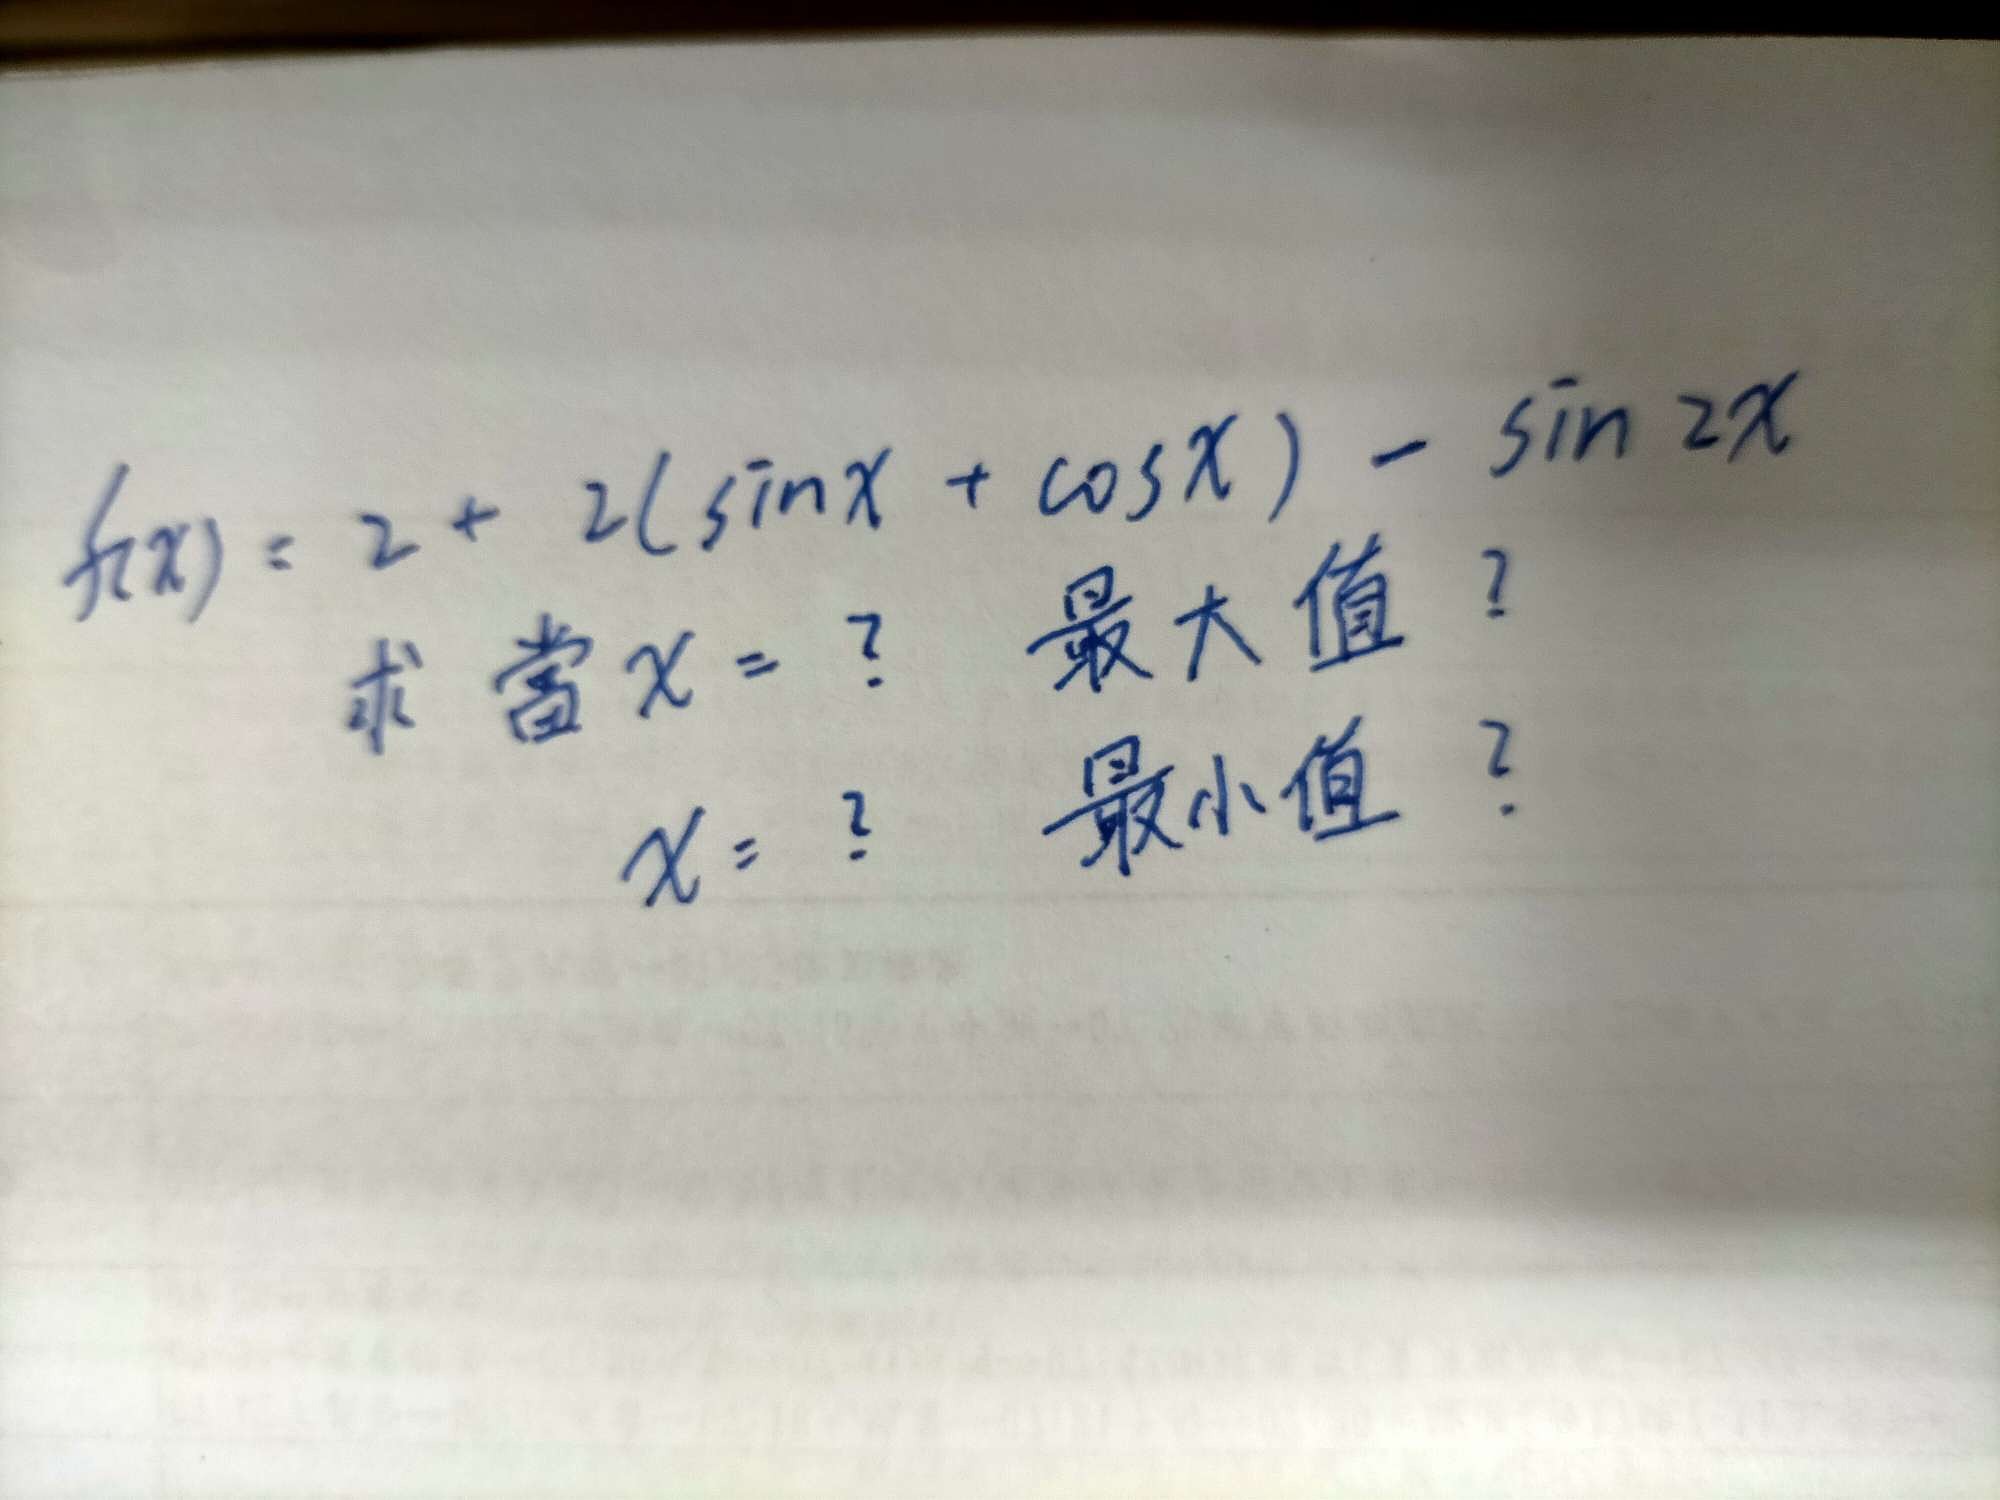 f(x) = 2 + 2(sinx + cosx) - sin2x
求當x = ? 最大值?
x = ? 最小值?